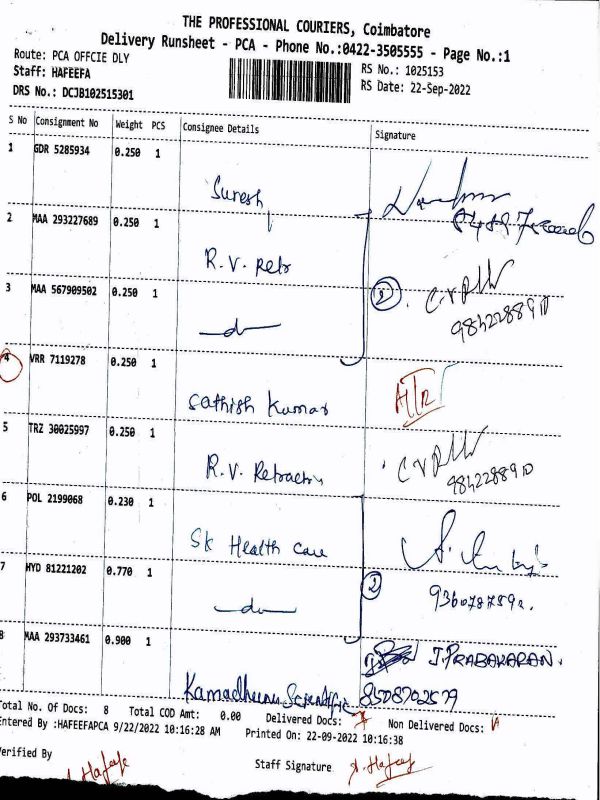 THE PROFESSIONAL COURIERS, Coimbatore
Delivery Runsheet - PCA - Phone No.:0422-3505555 - Page No.:1
Route: PCA OFFCIE DLY
Staff: HAFEEFA
DRS No.: DCJB102515301
RS No.: 1025153
RS Date: 22-Sep-2022
S No Consignment No Weight PCS Consignee Details Signature
1 GDR 5285934 0.250 1
Suresh
2 MAA 293227689 0.250 1
R.V.
3 MAA 567909502 0.250 1
2
9842288910
4 VRR 7119278 0.250 1
Sathish Kumar
5 TRZ 30025997 0.250 1
R.V.
9842288910
6 POL 2199068 0.230 1
SK Health Care
7 HYD 81221202 0.770 1
2
8 MAA 293733461 0.900 1
J. PRABAKARAN.
Kamadhenu Scientific 8508702579
Total No. Of Docs: 8 Total COD Amt: 0.00 Delivered Docs: 7 Non Delivered Docs: 1
Entered By :HAFEEFAPCA 9/22/2022 10:16:28 AM Printed On: 22-09-2022 10:16:38
Verified By Staff Signature